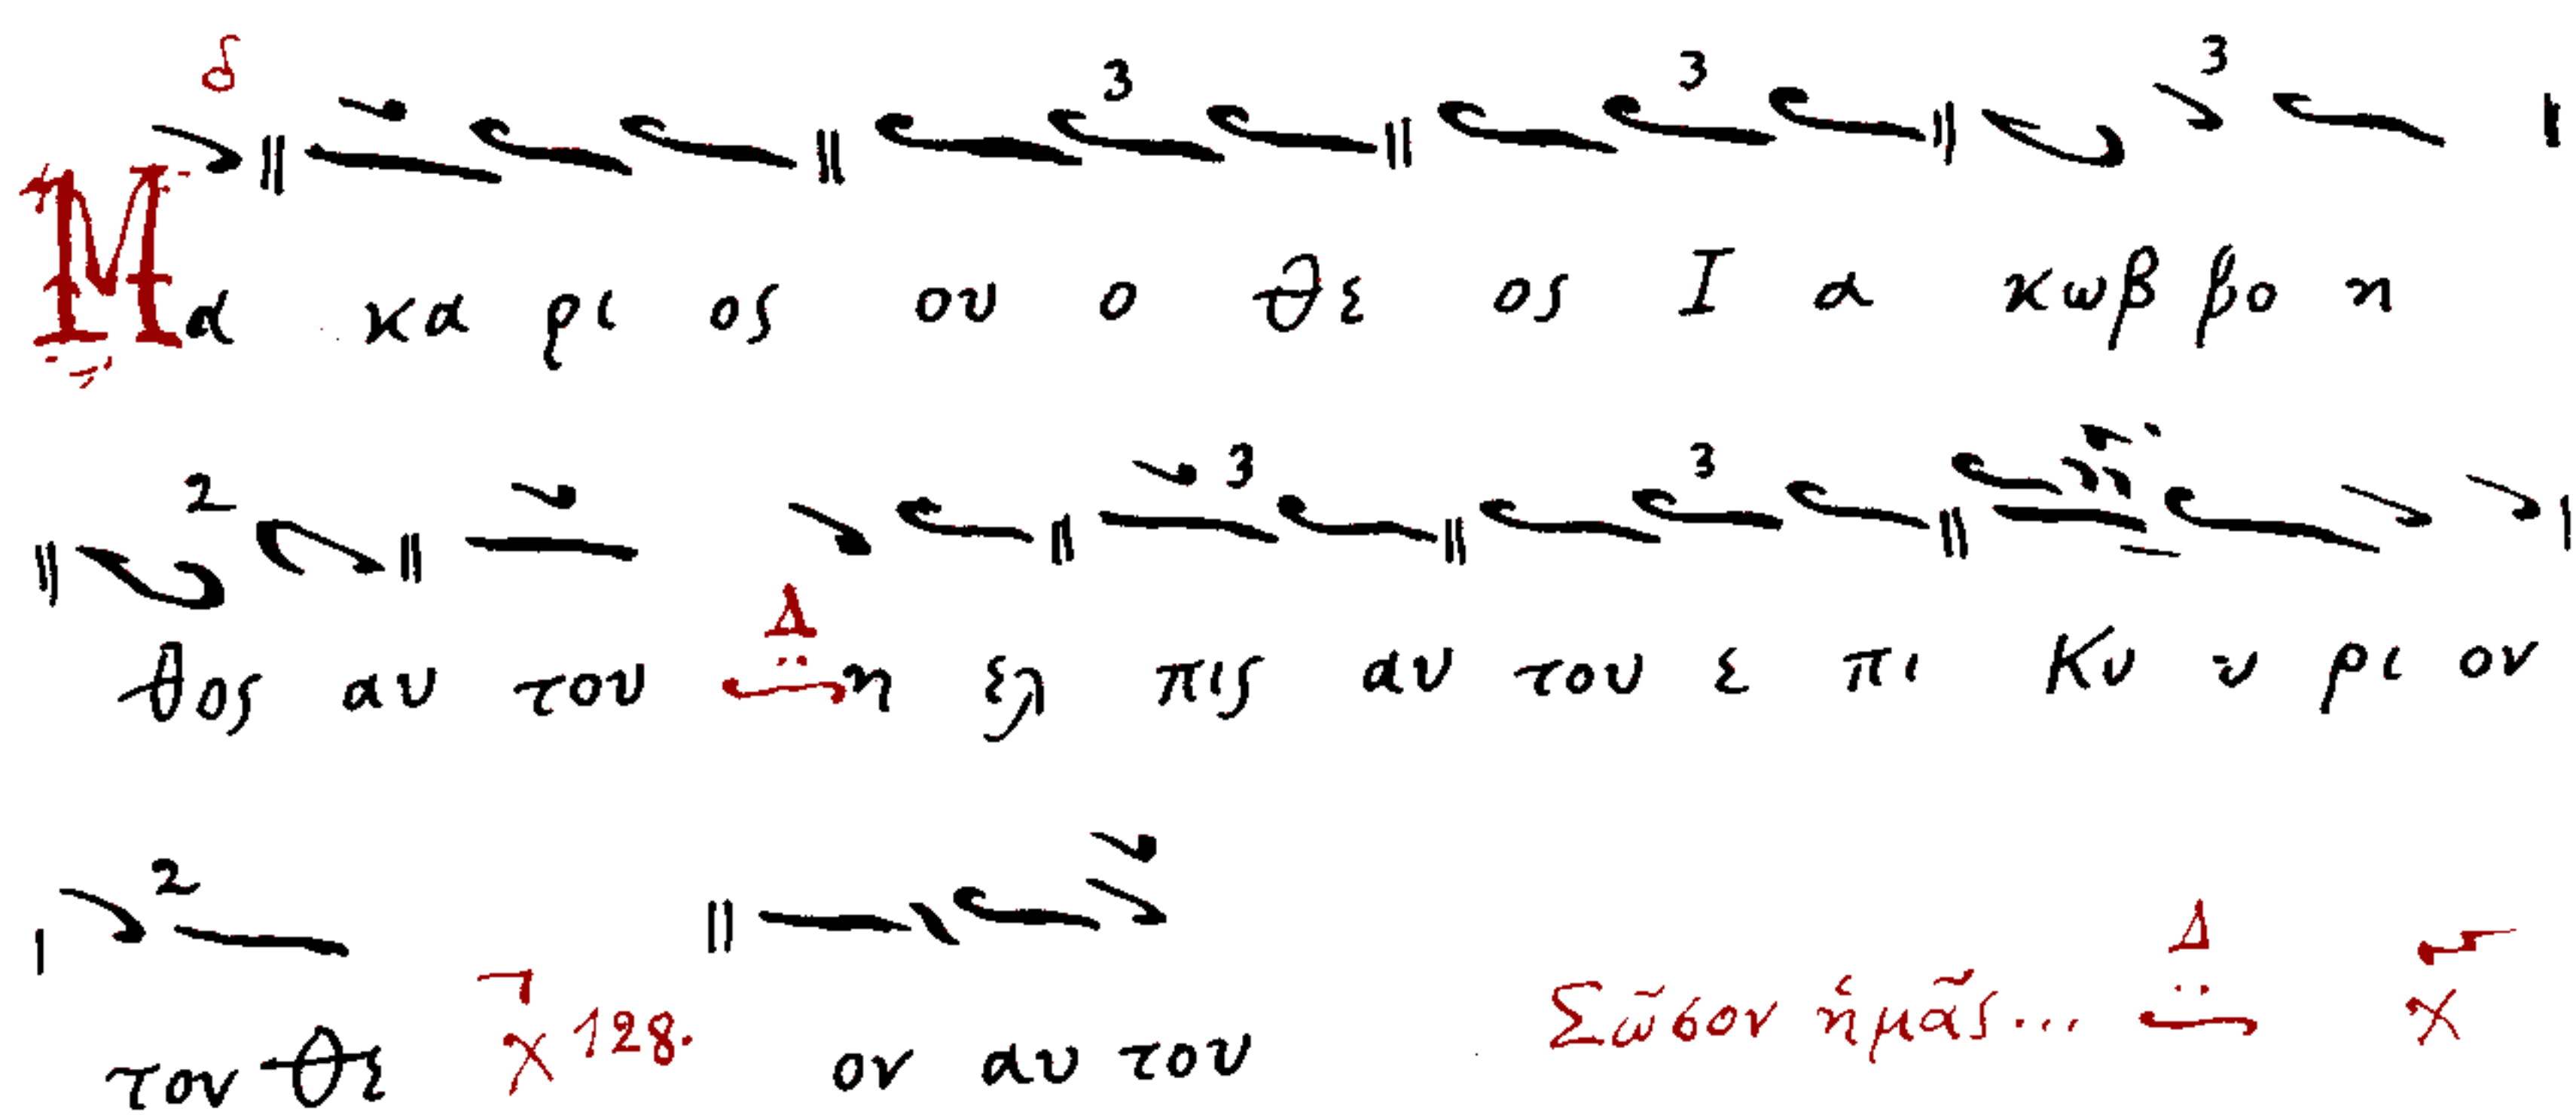 δ 3 3 3
Μα κα ρι ος ου ο θε ος Ι α κωβ βο η
2 3 3
θος αυ του Δ η ελ πις αυ του ε πι Κυ υ ρι ον
2
τον θε χ 128. ον αυ του Σῶσον ἡμᾶς... Δ χ